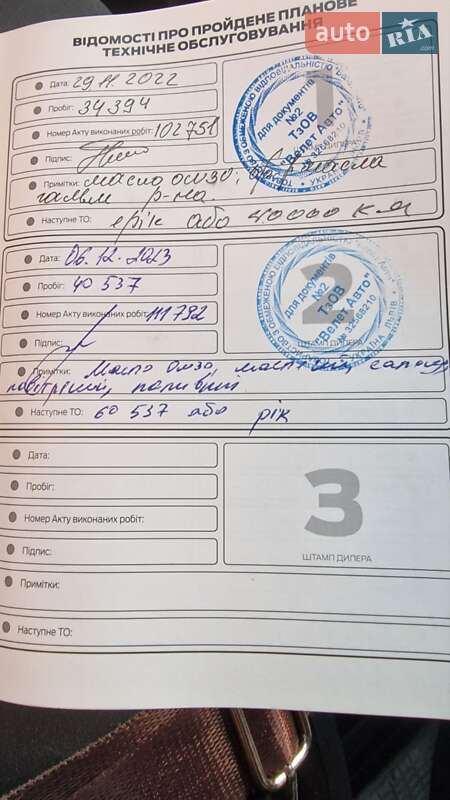 ВІДОМОСТІ ПРО ПРОЙДЕНЕ ПЛАНОВЕ
ТЕХНІЧНЕ ОБСЛУГОВУВАННЯ
auto RIA
.com
Дата: 29.11.2022
Пробіг: 34394
Номер Акту виконаних робіт: 102751
Підпис:
Примітки: масло 0W30, масла
гальм р-на.
Наступне ТО: 1рік або 40000 км
1
для документів
№2
ТзОВ
"Велет Авто"
32568210
УКРАЇНА
Дата: 06.12.2023
Пробіг: 40 537
Номер Акту виконаних робіт: 111792
Підпис:
Примітки: Масло 0w30, салону
повітряний, паливний
Наступне ТО: 60 537 або рік
2
для документів
№2
ТзОВ
"Велет Авто"
32568210
ШТАМП ДИЛЕРА
Дата:
Пробіг:
Номер Акту виконаних робіт:
Підпис:
Примітки:
Наступне ТО:
3
ШТАМП ДИЛЕРА